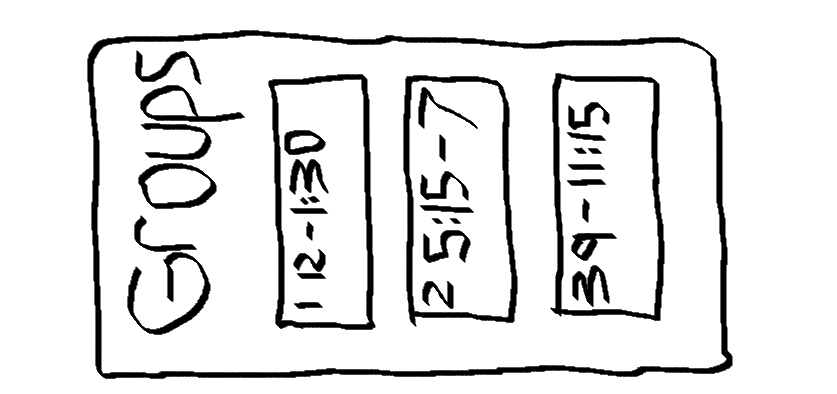 Groups
1 12-1:30
2 5:15-7
3 9-11:15